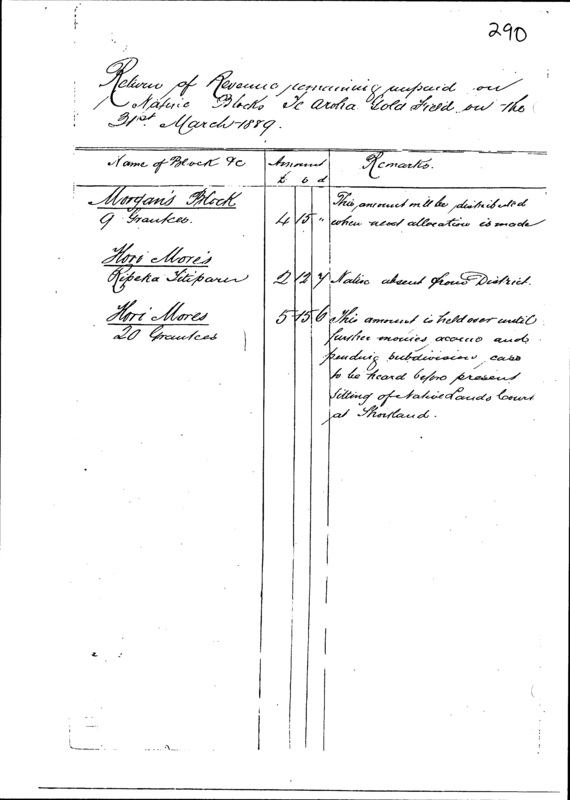 290
Return of Revenue remaining unpaid on
Native Blocks Te Aroha Gold Field on the
31st March 1889.
Name of Block &c Amount Remarks.
£ s d
Morgan's Block
9 Grantees. 4 15 " This amount will be distributed
when next allocation is made
Hori More's
Ripeka Titipara 2 12 7 Native absent from District.
Hori Mores 5 15 6 This amount is held over until
20 Grantees further monies accrue and
pending subdivision case
to be heard before present
sitting of Native Lands Court
at Shortland.